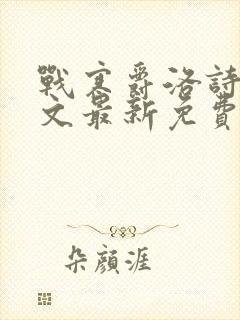 戰寒爵洛詩
文最新免費
朵顏涯